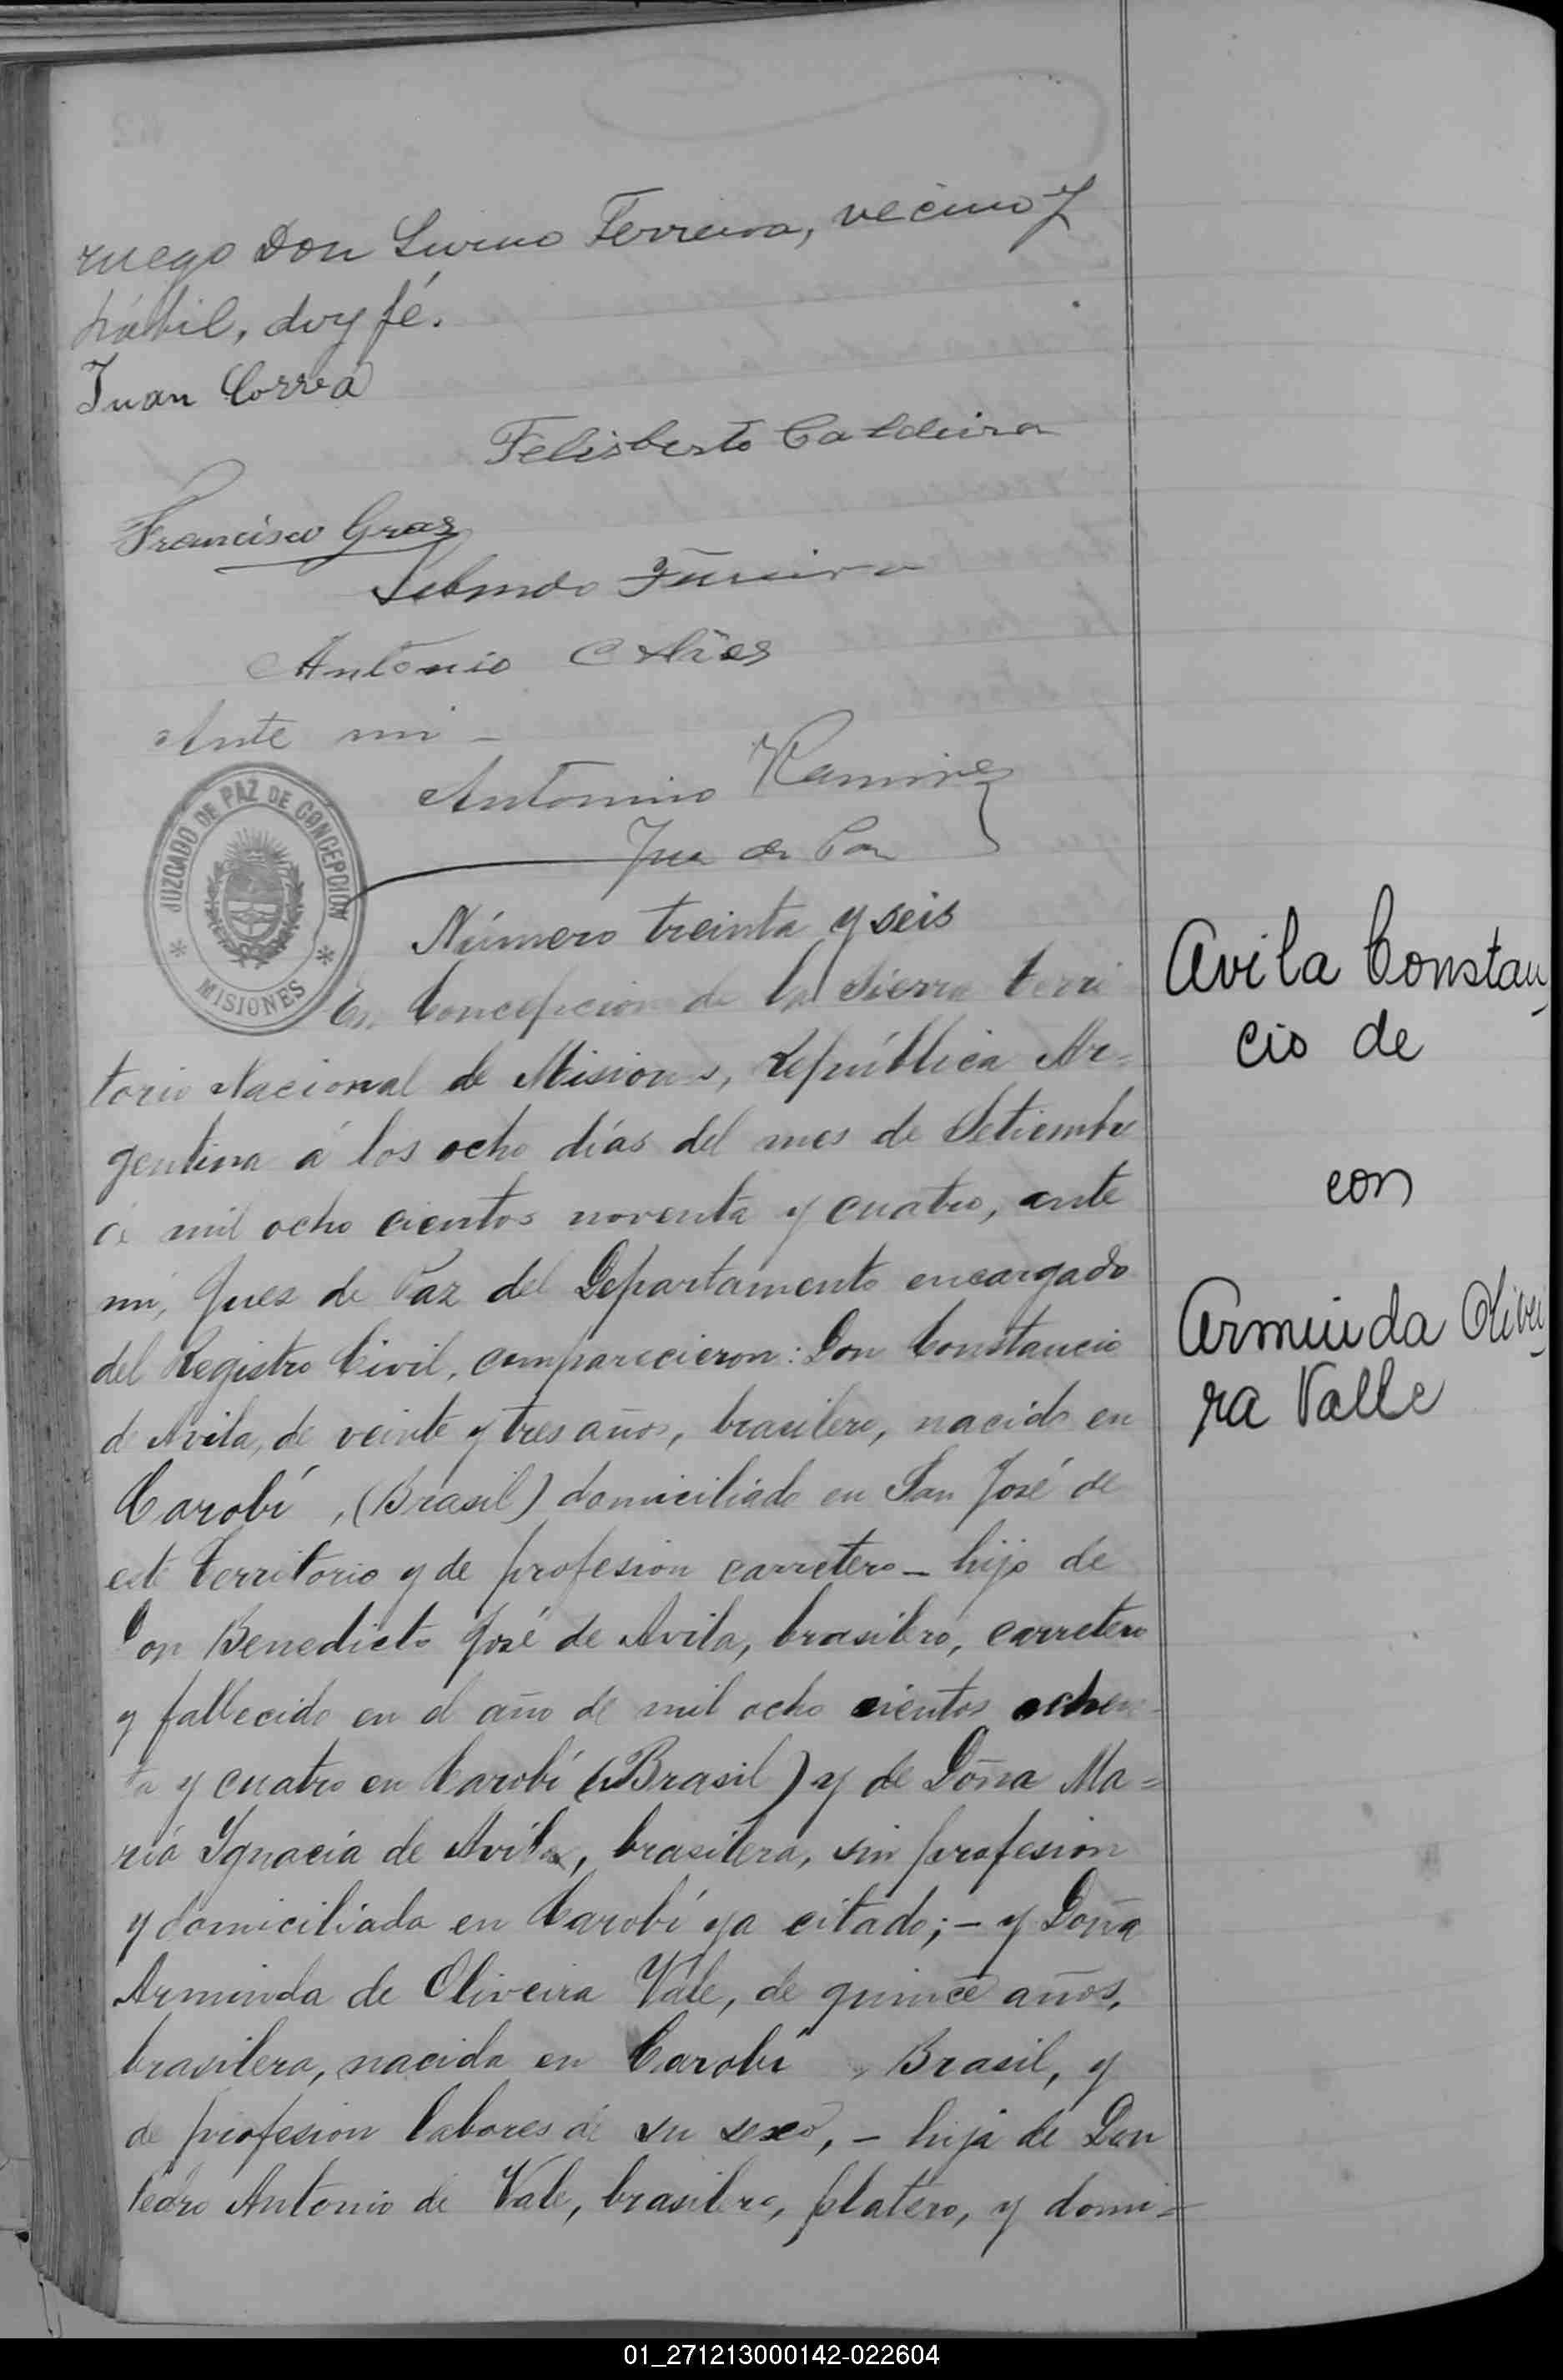 ruego Don Ferreira, vecino y
hábil, doy fé.
Juan Correa
Felisberto Caldeira
Francisco Gras
Antonio
Ante mi -
Antonino Ramirez
Juez de Paz
JUZGADO DE PAZ DE CONCEPCION
* MISIONES *
Número treinta y seis
En Concepcion de la Sierra terri
torio Nacional de Misiones, República Ar=
gentina á los ocho días del mes de Setiembre
de mil ocho cientos noventa y cuatro, ante
mi, Juez de Paz del Departamento encargado
del Registro Civil, comparecieron: Don Constancio
de Avila, de veinte y tres años, brasilero, nacido en
Carobí, (Brasil) domiciliado en San José de
este Territorio y de profesion carretero - hijo de
Don Benedicto José de Avila, brasilero, carretero
y fallecido en el año de mil ocho cientos ochen-
ta y cuatro en Carobí (Brasil) y de Doña Ma=
ría Ignacia de Avila, brasilera, sin profesion
y domiciliada en Carobí ya citado; - y Doña
Arminda de Oliveira Vale, de quince años,
brasilera, nacida en Carobí, Brasil, y
de profesion labores de su sexo, - hija de Don
Pedro Antonio de Vale, brasilero, platero, y domi=
Avila Constan-
cio de
con
Arminda Olivei-
ra Valle
01_271213000142-022604